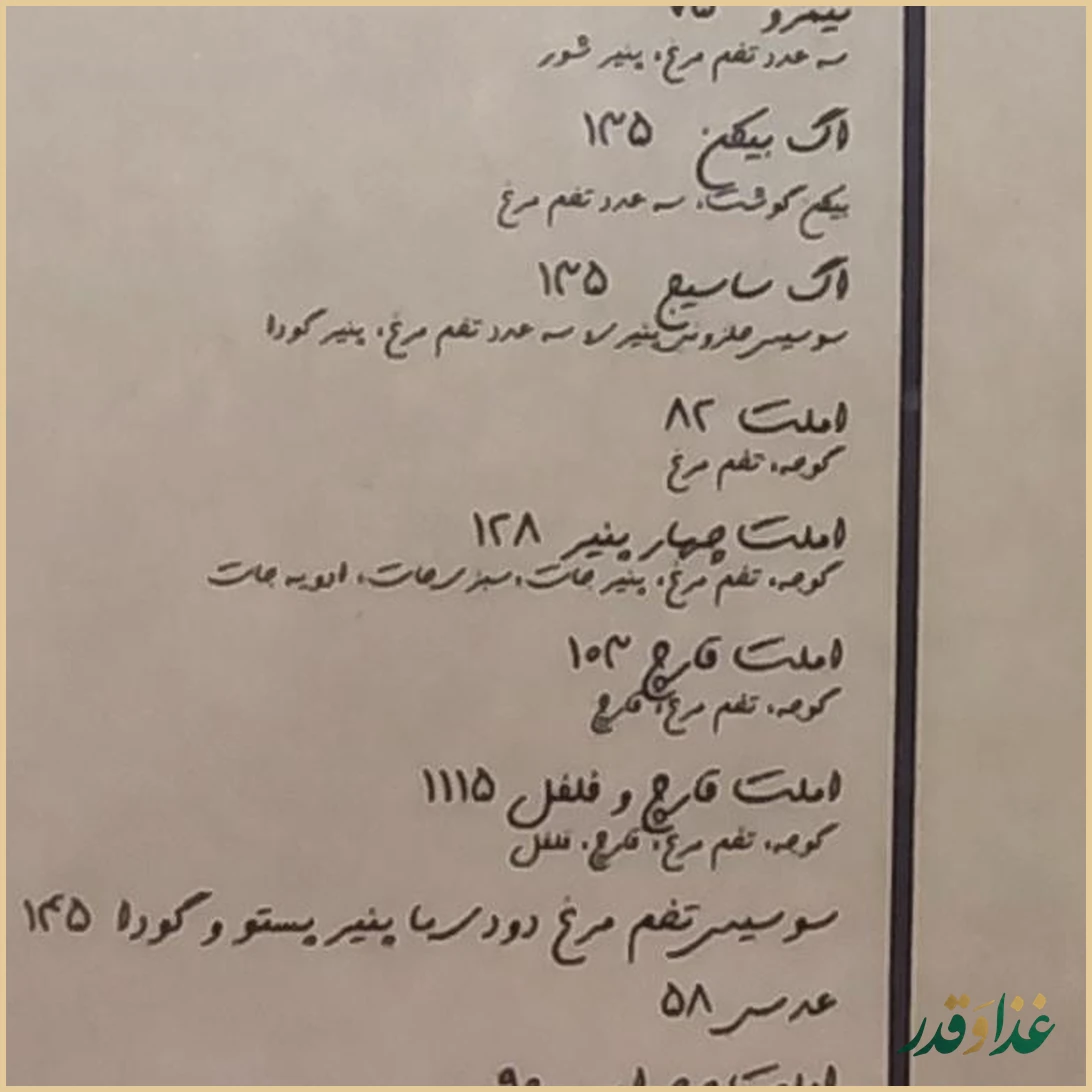 نیمرو ۷۵
سه عدد تخم مرغ، پنیر شور
اگ بیکن ۱۳۵
بیکن گوشت، سه عدد تخم مرغ
اگ ساسیج ۱۳۵
سوسیس حلزونی پنیری سه عدد تخم مرغ، پنیر گودا
املت ۸۲
گوجه، تخم مرغ
املت چهار پنیر ۱۲۸
گوجه، تخم مرغ، پنیر جات، سبزی جات، ادویه جات
املت قارچ ۱۰۳
گوجه، تخم مرغ، قارچ
املت قارچ و فلفل ۱۱۱۵
گوجه، تخم مرغ، قارچ، فلفل
سوسیس تخم مرغ دودی با پنیر پستو و گودا ۱۴۵
عدسی ۵۸
غذا و قدر